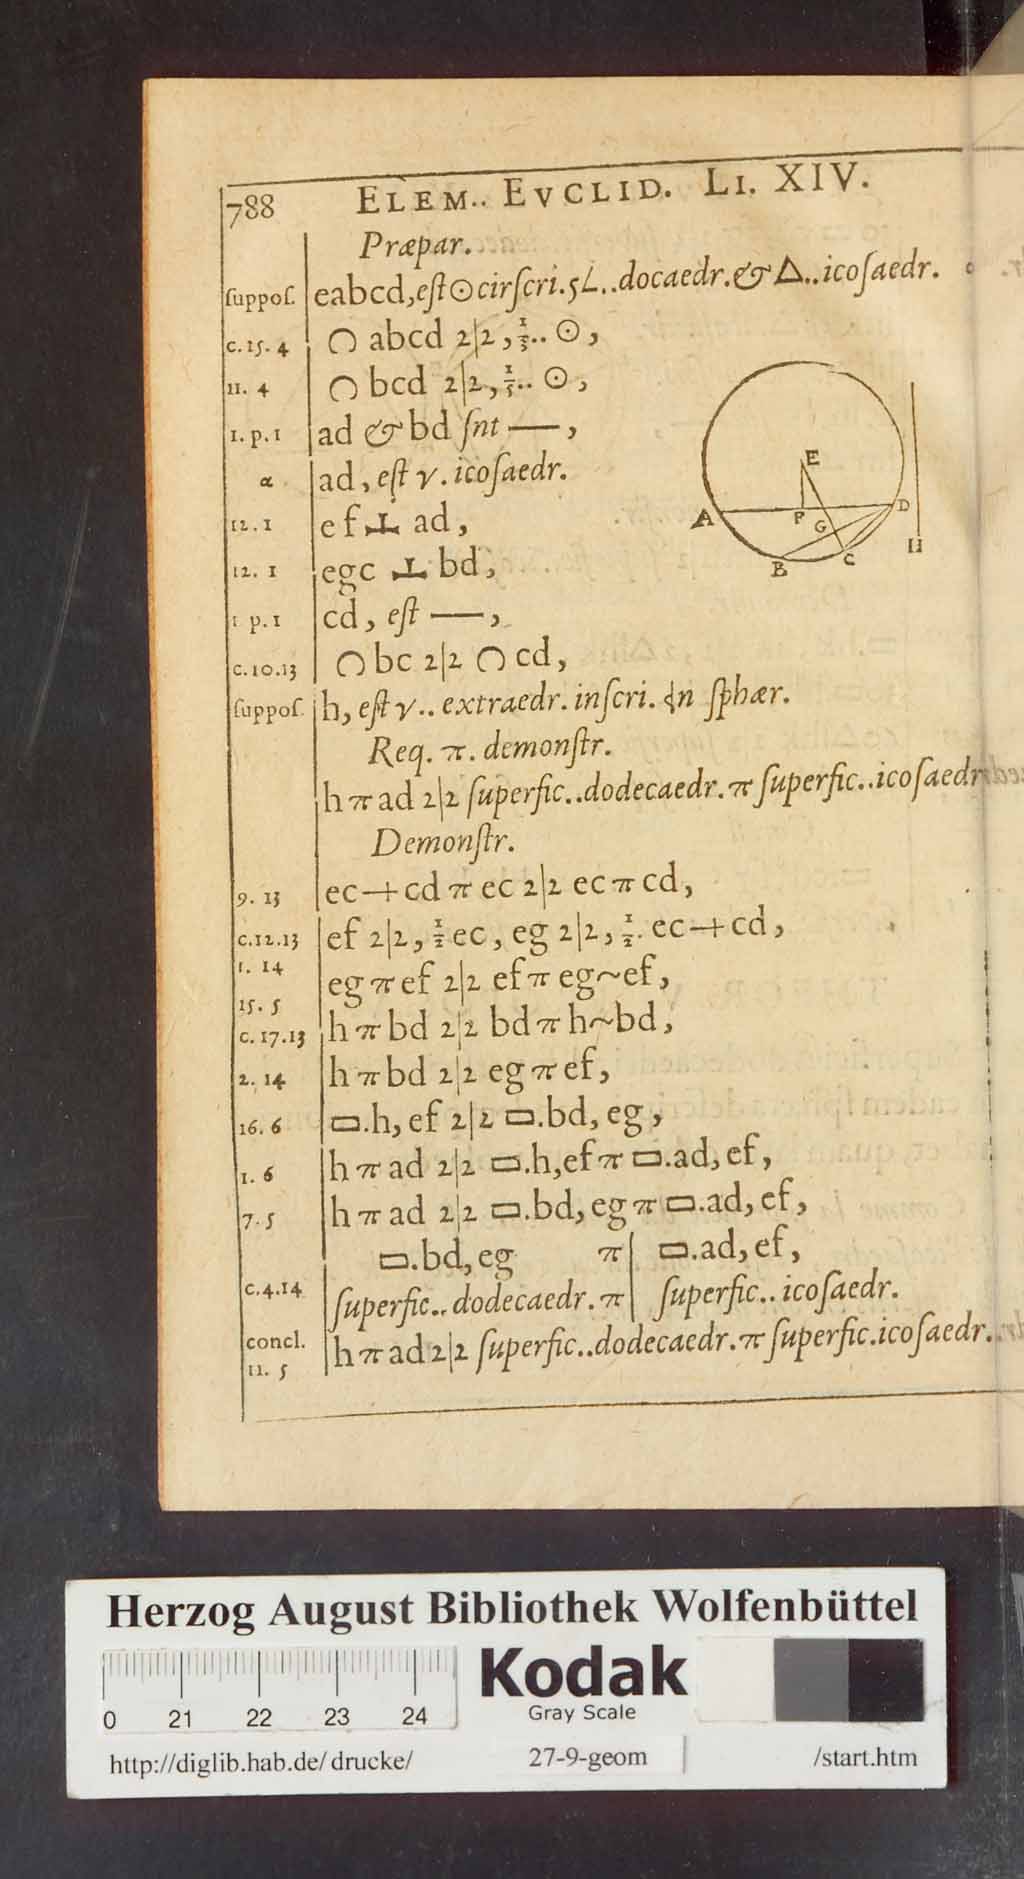 788 ELEM.. EVCLID. LI. XIV.
Præpar.
ſuppoſ. eabcd, eſt ⊙ cirſcri. 5∠..docaedr. & Δ..icoſaedr.
c. 15. 4 ◠ abcd 2|2, ⅓.. ⊙,
11. 4 ◠ bcd 2|2, ⅕.. ⊙,
1. p. 1 ad & bd ſnt —,
α ad, eſt γ. icoſaedr.
12. 1 ef ⊥ ad,
12. 1 egc ⊥ bd,
1 p. 1 cd, eſt —,
c. 10. 13 ◠ bc 2|2 ◠ cd,
ſuppoſ. h, eſt γ.. extraedr. inſcri. in ſphær.
Req. π. demonſtr.
h π ad 2|2 ſuperfic..dodecaedr. π ſuperfic..icoſaedr
Demonſtr.
9. 13 ec + cd π ec 2|2 ec π cd,
c. 12. 13 ef 2|2, ½ ec, eg 2|2, ½. ec + cd,
1. 14
eg π ef 2|2 ef π eg ~ ef,
15. 5
c. 17. 13 h π bd 2|2 bd π h ~ bd,
2. 14 h π bd 2|2 eg π ef,
16. 6 ▭.h, ef 2|2 ▭.bd, eg,
1. 6 h π ad 2|2 ▭.h, ef π ▭.ad, ef,
7. 5 h π ad 2|2 ▭.bd, eg π ▭.ad, ef,
▭.bd, eg π | ▭.ad, ef,
c. 4. 14 ſuperfic.. dodecaedr. π | ſuperfic.. icoſaedr.
concl. h π ad 2|2 ſuperfic..dodecaedr. π ſuperfic.icoſaedr.
11. 5
E
A
F
G
D
B
C
H
Herzog August Bibliothek Wolfenbüttel
Kodak
Gray Scale
0 21 22 23 24
http://diglib.hab.de/drucke/ 27-9-geom /start.htm